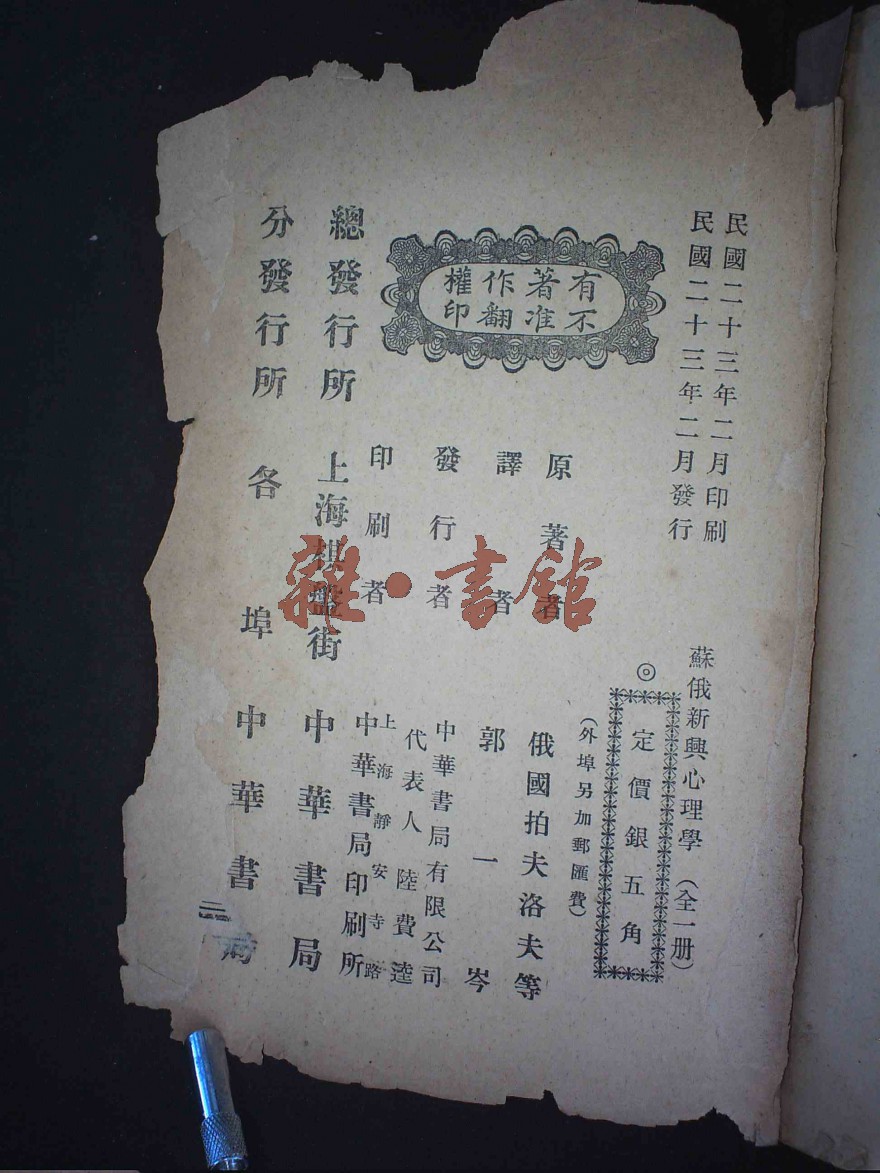 民國二十三年二月印刷
民國二十三年二月發行
蘇俄新興心理學（全一册）
◎定價銀五角
（外埠另加郵匯費）
有著作權
不准翻印
原著者　俄國拍夫洛夫等
譯者　郭一岑
發行者　中華書局有限公司
代表人　陸費逵
印刷者　上海靜安寺路
中華書局印刷所
總發行所　上海棋盤街　中華書局
分發行所　各埠　中華書局
雜·書館